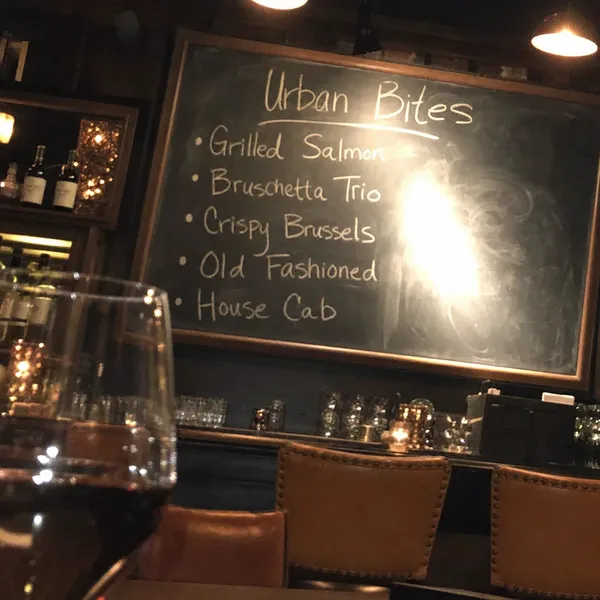 Urban Bites
• Grilled Salmon
• Bruschetta Trio
• Crispy Brussels
• Old Fashioned
• House Cab